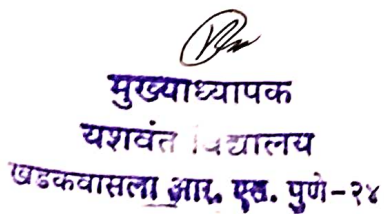 मुख्याध्यापक
यशवंत विद्यालय
खडकवासला आर. एस. पुणे-२४